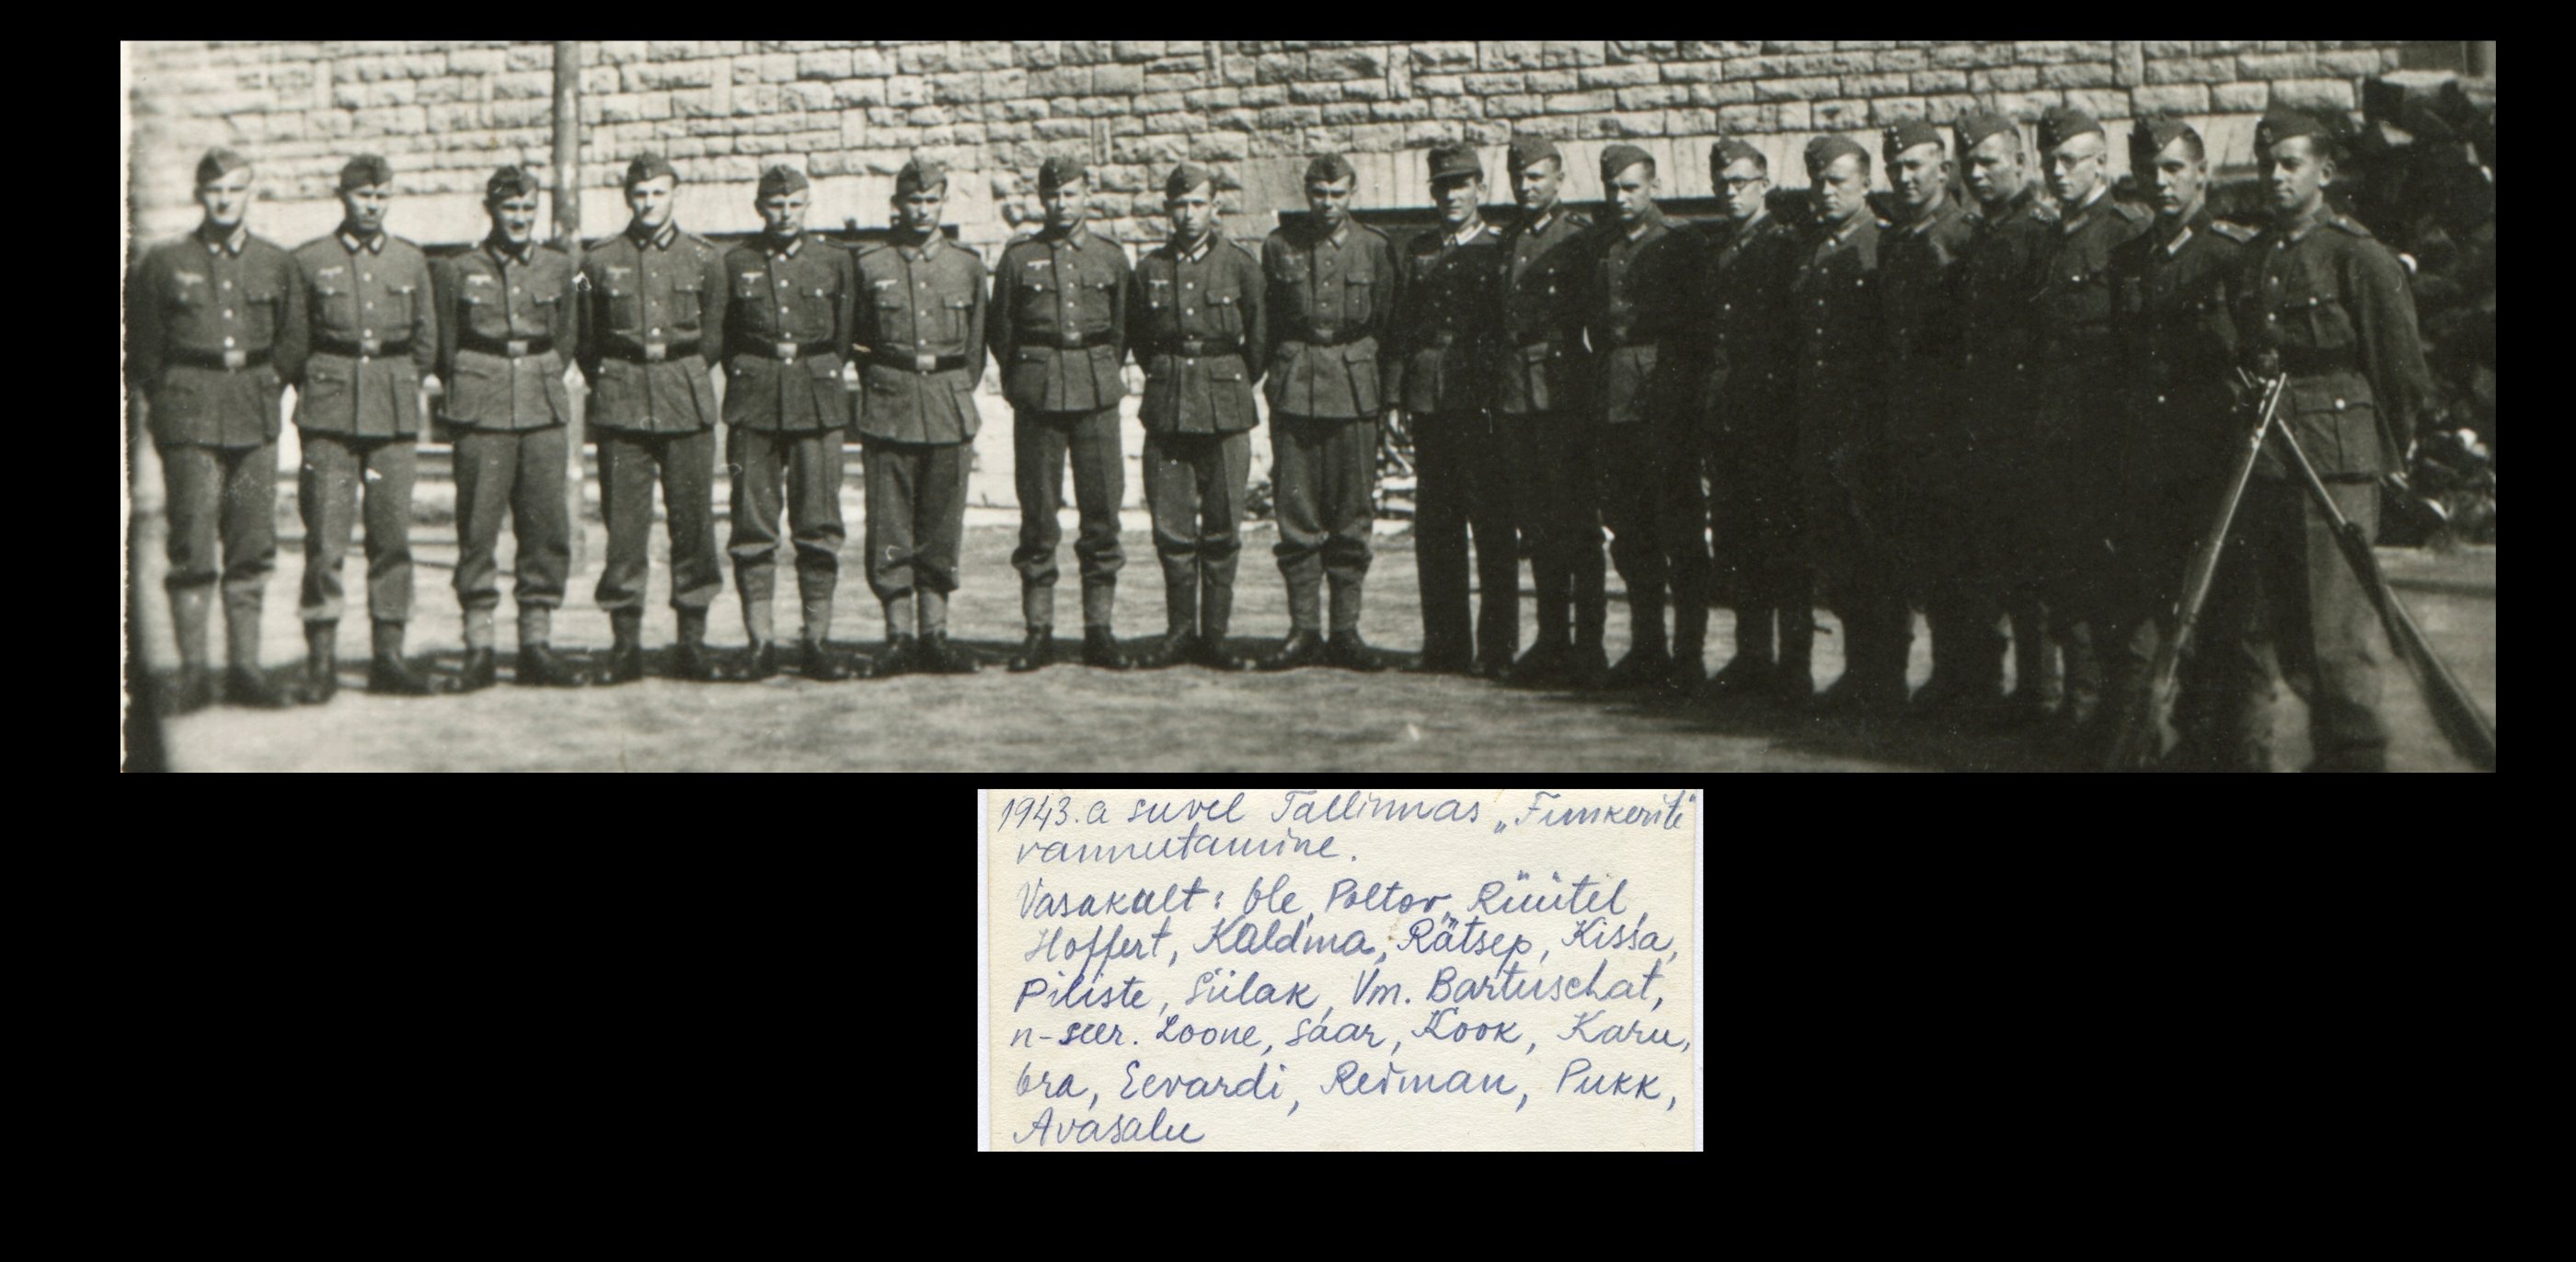 1943. a suvel Tallinnas „Funkerite"
vannutamine.
Vasakult: Ole, Poltov, Rüütel,
Hoffert, Kaldma, Rätsep, Kissa,
Piliste, Siilak, Vm. Bartuschat,
n-seer. Loone, Saar, Kook, Karu,
Ora, Eevardi, Reiman, Pukk,
Avasalu